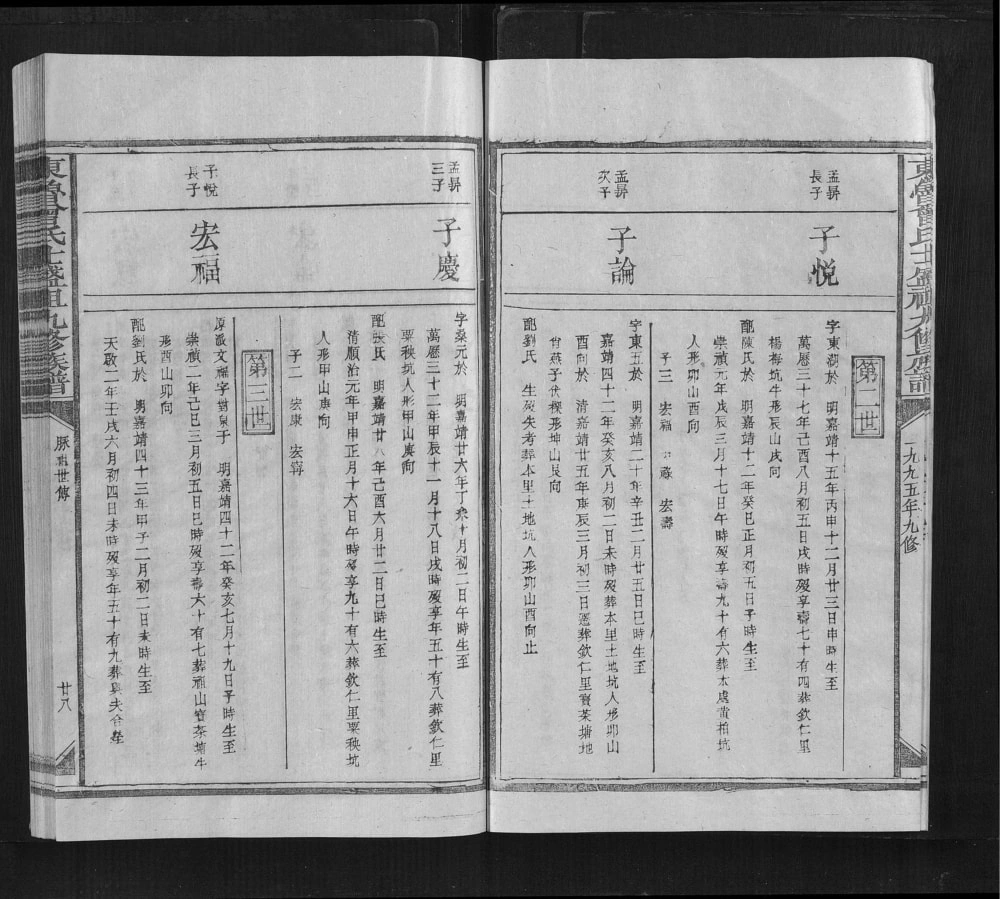 東魯曾氏士盛祖九修族譜
一九九五年九修
第二世
孟昺
長子
子悅
字東湖於 明嘉靖十五年丙申十二月廿三日申時生至
萬曆三十七年己酉八月初五日戌時歿享壽七十有四葬欽仁里
楊梅坑牛形辰山戌向
配陳氏於 明嘉靖十二年癸巳正月初五日子時生至
崇禎元年戊辰三月十七日午時歿享壽九十有六葬本處黃柏坑
人形卯山酉向
子三 宏福 宏壽
孟昺
次子
子論
字東五於 明嘉靖二十年辛丑二月廿五日巳時生至
嘉靖四十二年癸亥八月初二日未時歿葬本里土地坑人形卯山
酉向於 清嘉靖廿五年庚辰三月初三日遷葬欽仁里寶茶塘地
燕子伏樑形坤山艮向
配劉氏 生歿失考葬本里土地坑人形卯山酉向止
孟昺
三子
子慶
字桑元於 明嘉靖廿六年丁未十月初二日午時生至
萬曆三十二年甲辰十一月十八日戌時歿享年五十有八葬欽仁里
粟秧坑人形甲山庚向
配張氏 明嘉靖廿八年己酉六月廿二日巳時生至
清順治元年甲申正月十六日午時歿享九十有六葬欽仁里粟秧坑
人形甲山庚向
子二 宏康 宏寗
第三世
子悅
長子
宏福
原派文福字對泉子 明嘉靖四十二年癸亥七月十九日子時生至
崇禎二年己巳三月初五日巳時歿享壽六十有七葬祖山寶茶塘牛
形酉山卯向
配劉氏於 明嘉靖四十三年甲子二月初二日未時生至
天啟二年壬戌六月初四日未時歿享年五十有九葬與夫合塋
東魯曾氏士盛祖九修族譜
世傳
廿八